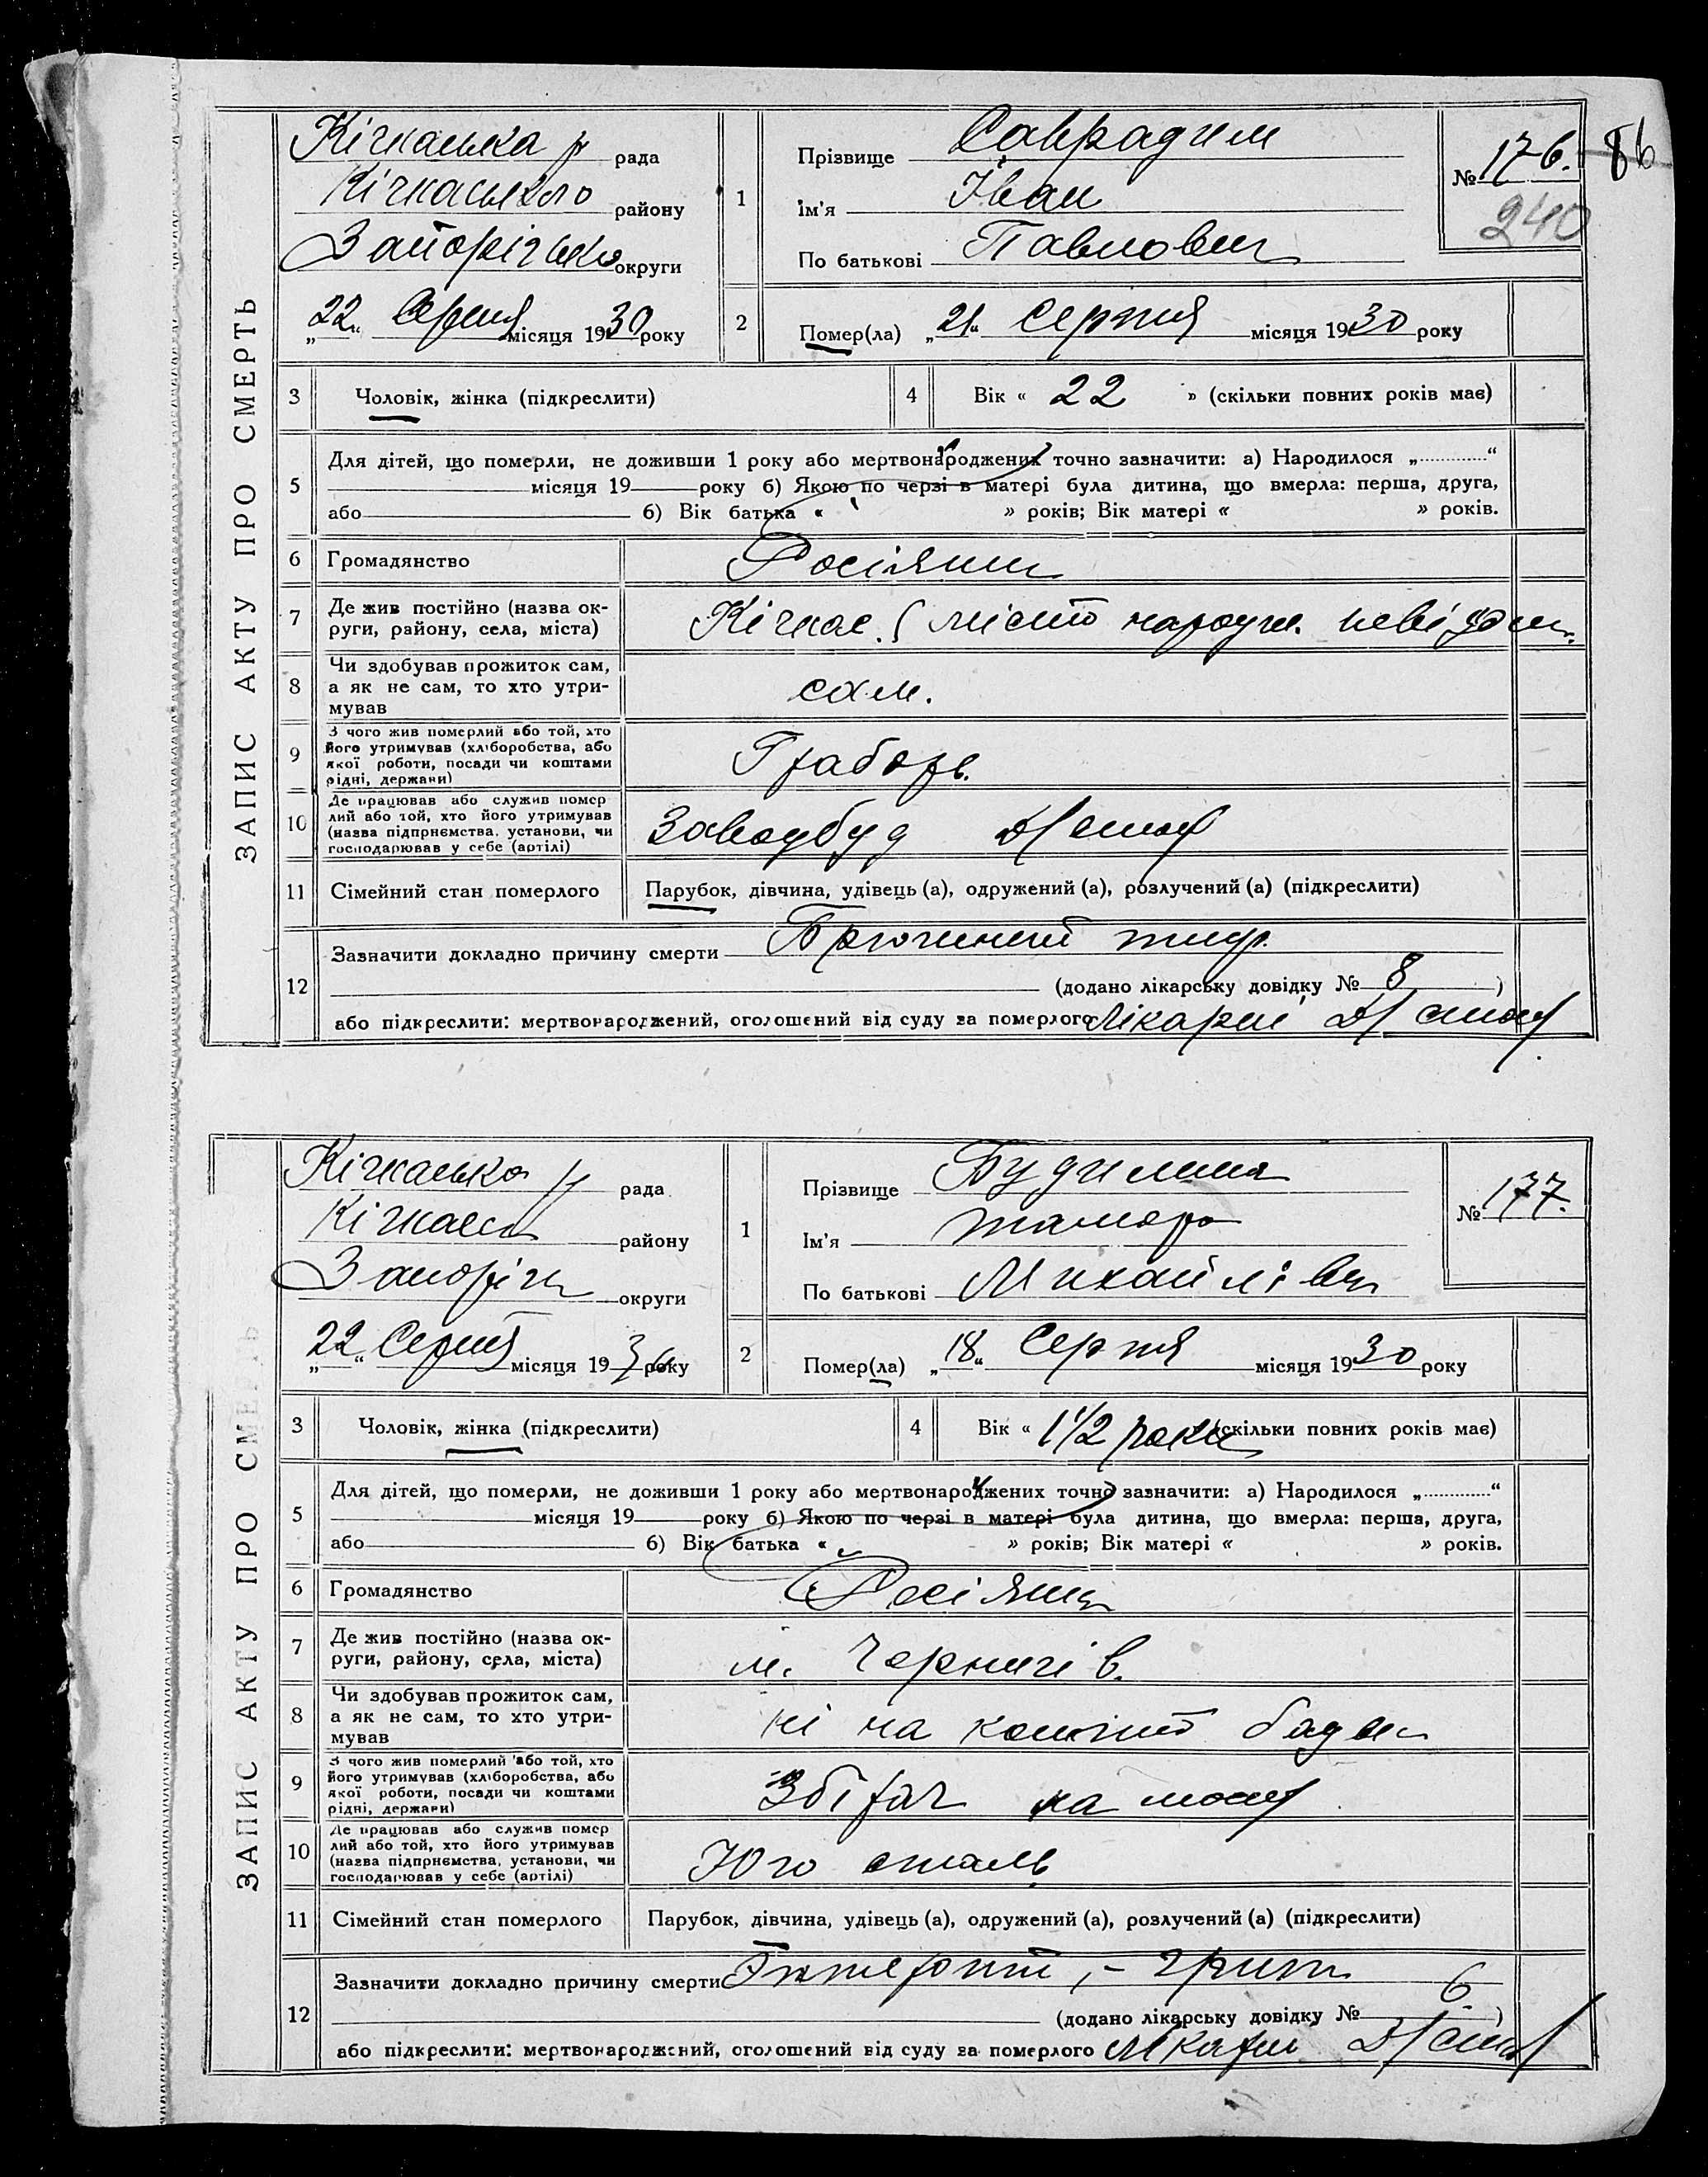 ЗАПИС АКТУ ПРО СМЕРТЬ
Кічкаська р рада
Кічкаського району
Запорізько округи
„22“ Серпня місяця 1930 року
1
Прізвище
Ім'я Іван
По батькові Павлович
№ 176.
86
240
2
Помер(ла) „21“ Серпня місяця 1930 року
3
Чоловік, жінка (підкреслити)
4
Вік « 22 » (скільки повних років має)
5
Для дітей, що померли, не доживши 1 року або мертвонароджених точно зазначити: а) Народилося „ “
місяця 19 року б) Якою по черзі в матері була дитина, що вмерла: перша, друга,
або б) Вік батька « » років; Вік матері « » років.
6
Громадянство Росіянин
7
Де жив постійно (назва ок-
руги, району, села, міста)
Кічкас. (місто народж. невідом.
8
Чи здобував прожиток сам,
а як не сам, то хто утри-
мував
сам.
9
З чого жив померлий або той, хто
його утримував (хліборобства, або
якої роботи, посади чи коштами
рідні, держави)
Грабарь
10
Де працював або служив помер
лий або той, хто його утримував
(назва підприємства, установи, чи
господарював у себе (артілі)
Заводбуд
11
Сімейний стан померлого
Парубок, дівчина, удівець (а), одружений (а), розлучений (а) (підкреслити)
12
Зазначити докладно причину смерти Брюшний тиф.
(додано лікарську довідку № 8 )
або підкреслити: мертвонароджений, оголошений від суду за померлого Лікарні
ЗАПИС АКТУ ПРО СМЕРТЬ
Кічкаська р рада
Кічкаськ району
Запоріж округи
„22“ Серпня місяця 1930 року
1
Прізвище
Ім'я Тамара
По батькові Михайлівн
№ 177.
2
Помер(ла) „18“ Серпня місяця 1930 року
3
Чоловік, жінка (підкреслити)
4
Вік « 1 1/2 роки (скільки повних років має)
5
Для дітей, що померли, не доживши 1 року або мертвонароджених точно зазначити: а) Народилося „ “
місяця 19 року б) Якою по черзі в матері була дитина, що вмерла: перша, друга,
або б) Вік батька « » років; Вік матері « » років.
6
Громадянство Росіянк
7
Де жив постійно (назва ок-
руги, району, села, міста)
м. Чернигів.
8
Чи здобував прожиток сам,
а як не сам, то хто утри-
мував
ні на кошти батьк
9
З чого жив померлий або той, хто
його утримував (хліборобства, або
якої роботи, посади чи коштами
рідні, держави)
Збірач на
10
Де працював або служив помер
лий або той, хто його утримував
(назва підприємства, установи, чи
господарював у себе (артілі)
Юго сталь
11
Сімейний стан померлого
Парубок, дівчина, удівець (а), одружений (а), розлучений (а) (підкреслити)
12
Зазначити докладно причину смерти
(додано лікарську довідку № 6 )
або підкреслити: мертвонароджений, оголошений від суду за померлого Лікарні